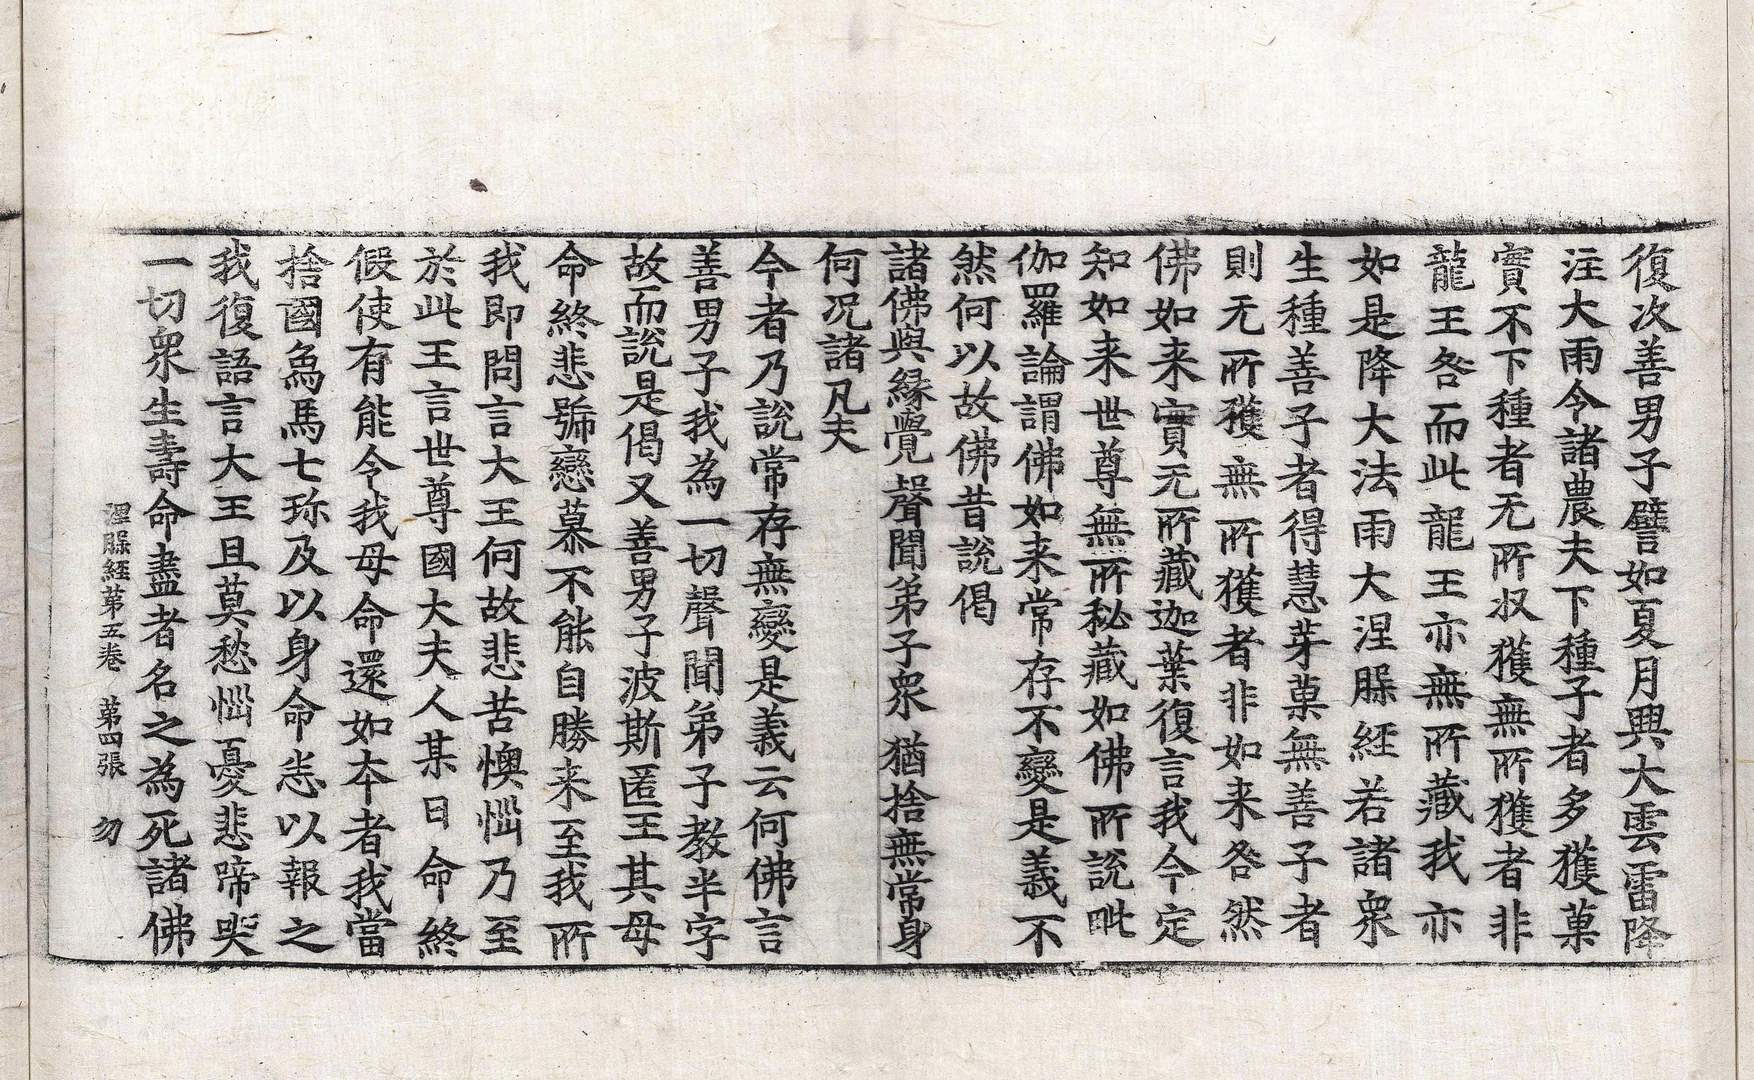 復次善男子譬如夏月興大雲雷降
注大雨令諸農夫下種子者多獲菓
實不下種者无所収獲無所獲者非
龍王咎而此龍王亦無所藏我亦
如是降大法雨大涅槃經若諸衆
生種善子者得慧芽菓無善子者
則无所獲無所獲者非如来咎然
佛如来實无所藏迦葉復言我今定
知如来世尊無所秘藏如佛所說毗
伽羅論謂佛如来常存不變是義不
然何以故佛昔說偈
諸佛與緣覺聲聞弟子衆猶捨無常身
何况諸凡夫
今者乃說常存無變是義云何佛言
善男子我為一切聲聞弟子教半字
故而說是偈又善男子波斯匿王其母
命終悲號戀慕不能自勝来至我所
我即問言大王何故悲苦懊惱乃至
於此王言世尊國大夫人某日命終
假使有能令我母命還如本者我當
捨國象馬七珎及以身命悉以報之
我復語言大王且莫愁惱憂悲啼哭
一切衆生壽命盡者名之為死諸佛
涅槃経第五卷　第四張　勿